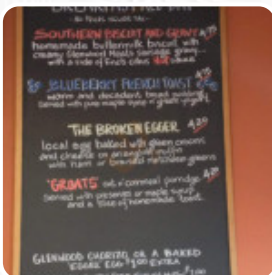 BREAKFAST ALL DAY
SOUTHERN BISCUIT AND GRAVY
homemade buttermilk biscuit with
creamy Glenwood Meats sausage gravy
with a side of
BLUEBERRY FRENCH TOAST
warm and decadent, bread pudding
served with pure maple syrup n' greek yogurt
THE BROKEN EGGER
local egg baked with green onions
and cheese on an english muffin
with ham or braised northern greens
"GROATS" oat n' cornmeal porridge
served with preserves or maple syrup
and a slice of homemade toast
GLENWOOD CHORIZO OR A BAKED
EGGER EGG $1.00 EXTRA